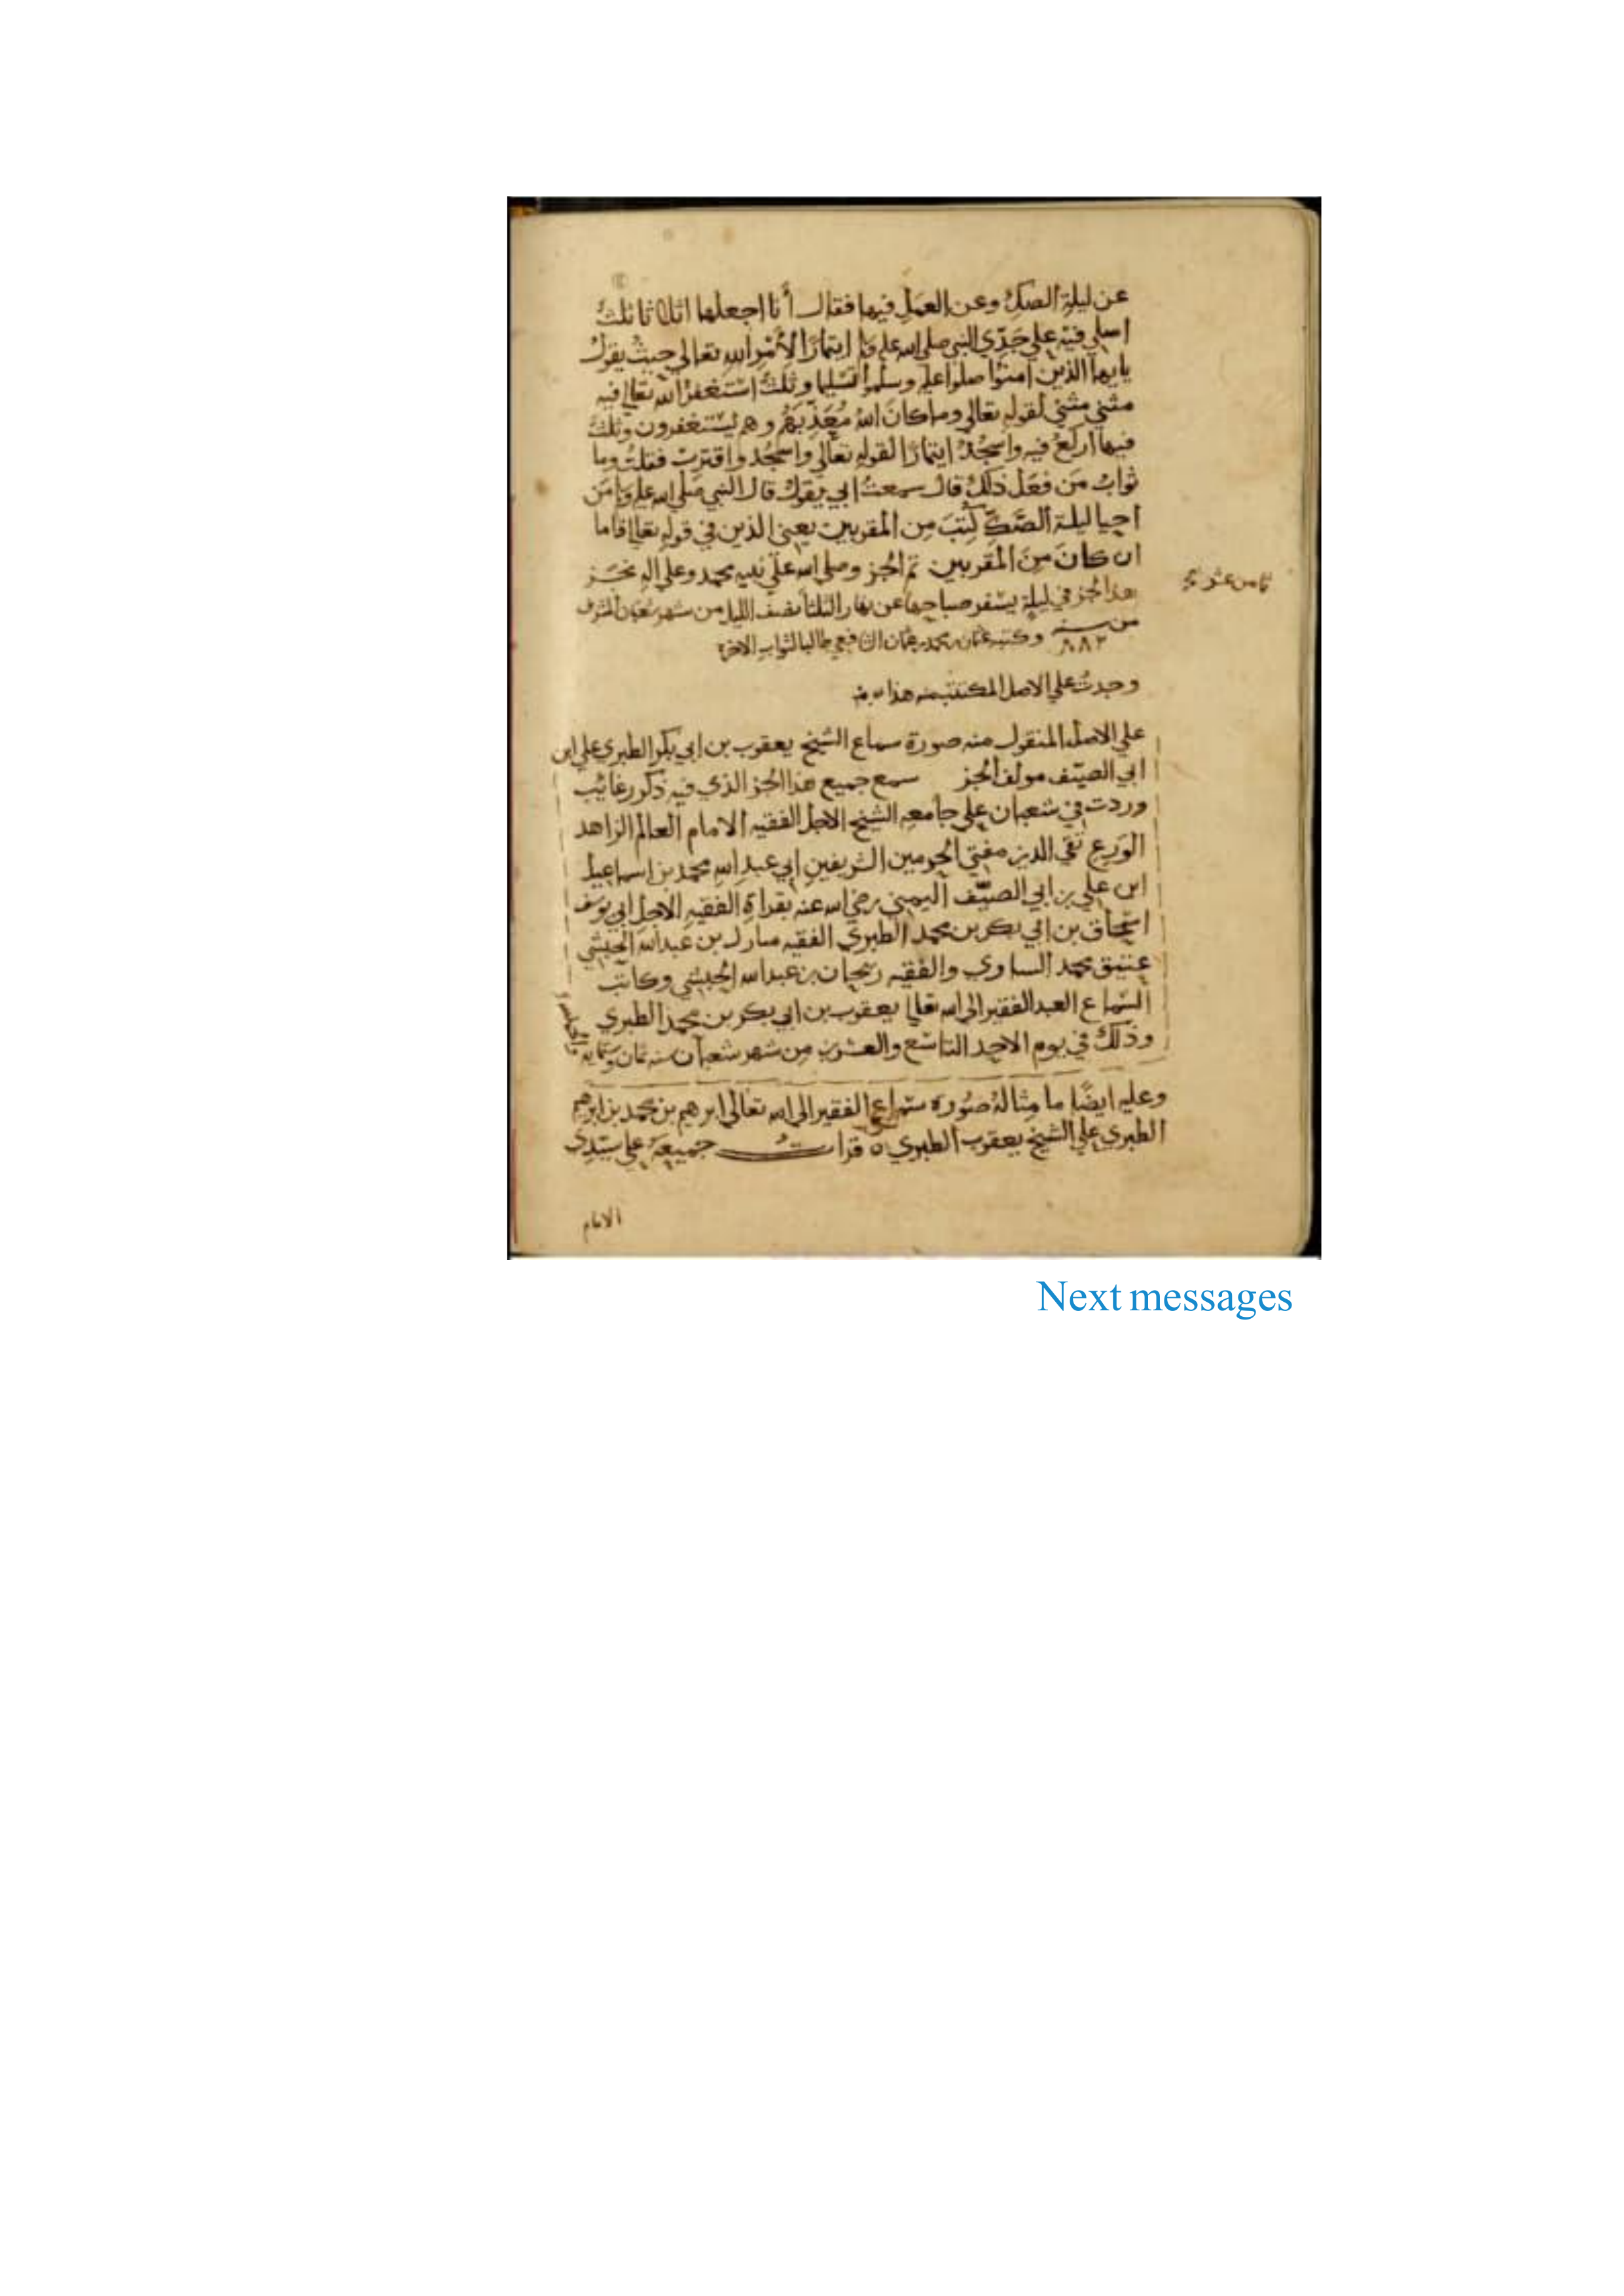 عن ليلة الصك وعن العمل فيها فقال أنا اجعلها اثلاثا ثلث
اصلي فيه على جدي النبي صلى الله عليه وسلم ايتمارًا لأمر الله تعالى حيث يقول
يايها الذين امنوا صلوا عليه وسلموا تسليما وثلث استغفر الله تعالى فيه
مثنى مثنى لقوله تعالى وما كان الله معذبهم وهم يستغفرون وثلث
فيها اركع فيه واسجد ايتمارًا لقوله تعالى واسجد واقترب فقلت وما
ثواب من فعل ذلك قال سمعت ابي يقول قال النبي صلى الله عليه وسلم من
احيا ليلة الصك كتب من المقربين يعني الذين في قوله تعالى فاما
ان كان من المقربين تم الجز وصلى الله على نبيه محمد وعلى اله نجز
ثامن عشر
هذا الجز في ليلة يسفر صباحها عن نهار الثلثا نصف الليل من شهر شعبان المشرف
من سنة ٨٨٢ وكتبه عثمان بن محمد بن عثمان الشافعي طالبا لثواب الاخرة
وجدت على الاصل المكتتب منه هذا
على الاصل المنقول منه صورة سماع الشيخ يعقوب بن ابي بكر الطبري على ابن
ابي الصيف مولف الجز سمع جميع هذا الجز الذي فيه ذكر رغائب
وردت في شعبان على جامعه الشيخ الاجل الفقيه الامام العالم الزاهد
الورع تقي الدين مفتي الحرمين الشريفين ابي عبد الله محمد بن اسماعيل
ابن علي بن ابي الصيف اليمني رضي الله عنه بقراة الفقيه الاجل ابي يوسف
اسحاق بن ابي بكر بن محمد الطبري الفقيه مبارك بن عبد الله الحبشي
عتيق محمد الساوي والفقيه ريحان بن عبد الله الحبشي وكاتب
السماع العبد الفقير الى الله تعالى يعقوب بن ابي بكر بن محمد الطبري
وذلك في يوم الاحد التاسع والعشرين من شهر شعبان سنة ثمان وستمايه
وعليه ايضًا ما مثاله صورة سماع الفقير الى الله تعالى ابرهيم بن محمد بن ابرهيم
الطبري على الشيخ يعقوب الطبري ه قرات جميعه على سيدي
الامام
Next messages